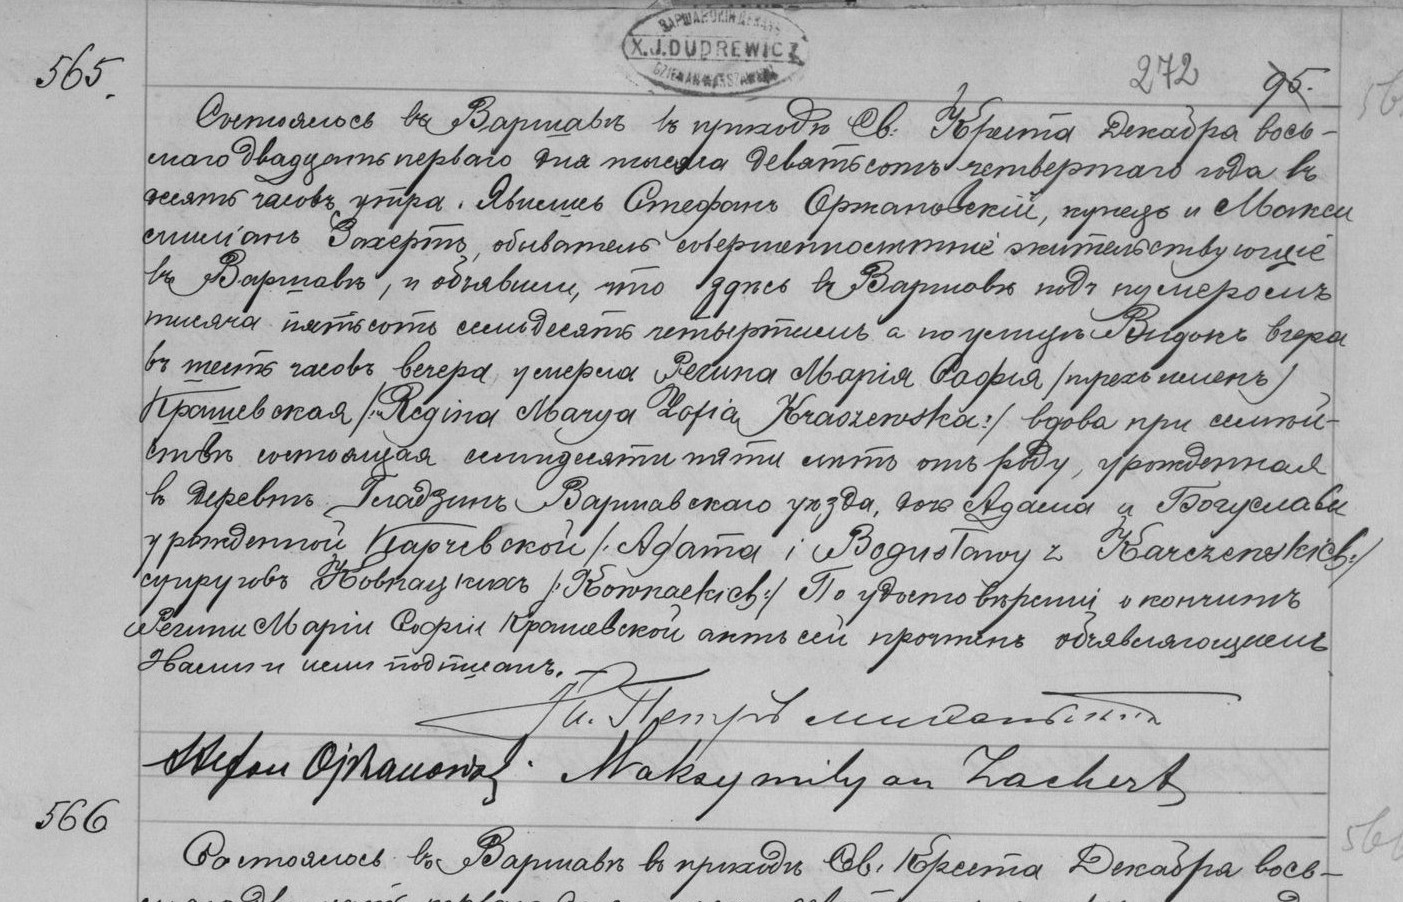 ВАРШАВСКІЙ ДЕКАНЪ
X. J. DUDREWICZ
DZIEKAN WARSZAWSKI
565.
272 95.
Состоялось въ Варшавѣ въ приходѣ Св. Креста Декабря вось-
маго двадцать перваго дня тысяча девятьсотъ четвертаго года въ
десять часовъ утра. Явились Стефанъ Оржановскій, купецъ и Макси
миліанъ Захертъ, обыватель совершеннолѣтніе жительствующіе
въ Варшавѣ, и объявили, что здѣсь въ Варшавѣ подъ нумеромъ
тысяча пятьсотъ семьдесятъ четвертымъ а по улицѣ Видокъ вчера
въ шесть часовъ вечера умерла Регина Марія Софія /трехъ именъ/
Крашевская /:Regina Marya Zofia Kraszewska:/ вдова при семей-
ствѣ состоящая семидесяти пяти лѣтъ отъ роду, урожденная
въ деревнѣ Гладзинъ Варшавскаго уѣзда, дочь Адама и Богуславы
урожденной Карчевской /:Adama i Bogusławy z Karczewskich:/
супруговъ Ковнацкихъ /:Kownackich:/ По удостовѣреніи о кончинѣ
Регины Маріи Софіи Крашевской актъ сей прочтенъ объявляющимъ
Нами и ими подписанъ.
Кс. Петръ
Stefan Ojrzanowski. Maksymilyan Zachert
566
Состоялось въ Варшавѣ въ приходѣ Св. Креста Декабря вось-